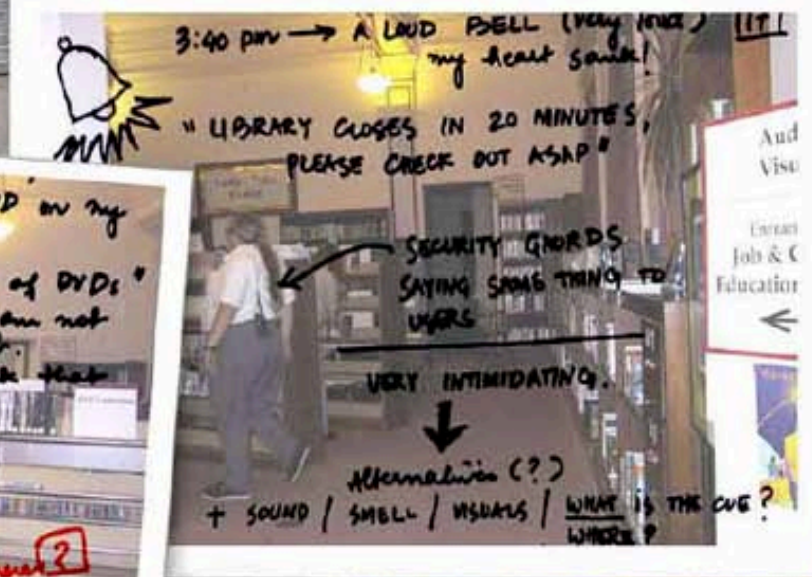 3:40 pm → A LOUD BELL (very loud)
my heart sank!
"LIBRARY CLOSES IN 20 MINUTES,
PLEASE CHECK OUT ASAP"
SECURITY GAORDS
SAYING SAME THING TO
USERS
VERY INTIMIDATING.
Alternatives (?)
+ SOUND / SMELL / VISUALS / WHAT IS THE CUE?
WHERE?
on my
of DVDs"
am not
that
?
Aud
Visu
Job & C
Education
←